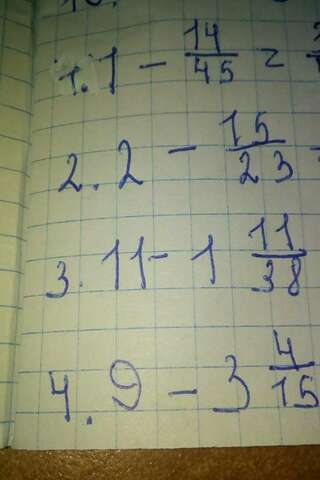 1. 1 - 14/45 =
2. 2 - 15/23
3. 11 - 1 11/38
4. 9 - 3 4/15